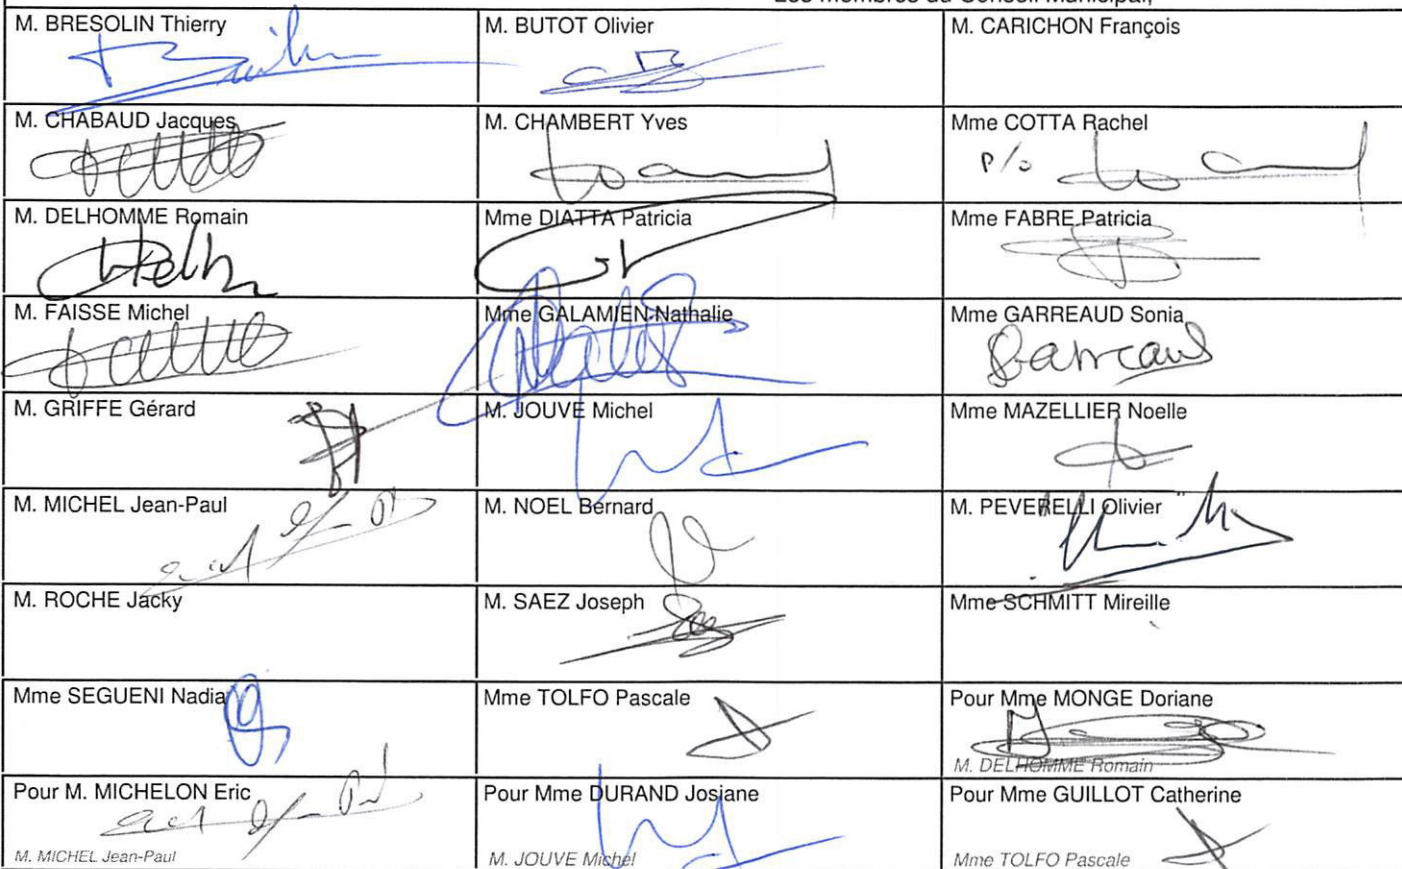 Les membres du Conseil Municipal,
M. BRESOLIN Thierry
M. BUTOT Olivier
M. CARICHON François
M. CHABAUD Jacques
M. CHAMBERT Yves
Mme COTTA Rachel
P/o
M. DELHOMME Romain
Mme DIATTA Patricia
Mme FABRE Patricia
M. FAISSE Michel
Mme GALAMIEN Nathalie
Mme GARREAUD Sonia
M. GRIFFE Gérard
M. JOUVE Michel
Mme MAZELLIER Noelle
M. MICHEL Jean-Paul
M. NOEL Bernard
M. PEVERELLI Olivier
M. ROCHE Jacky
M. SAEZ Joseph
Mme SCHMITT Mireille
Mme SEGUENI Nadia
Mme TOLFO Pascale
Pour Mme MONGE Doriane
M. DELHOMME Romain
Pour M. MICHELON Eric
M. MICHEL Jean-Paul
Pour Mme DURAND Josiane
M. JOUVE Michel
Pour Mme GUILLOT Catherine
Mme TOLFO Pascale